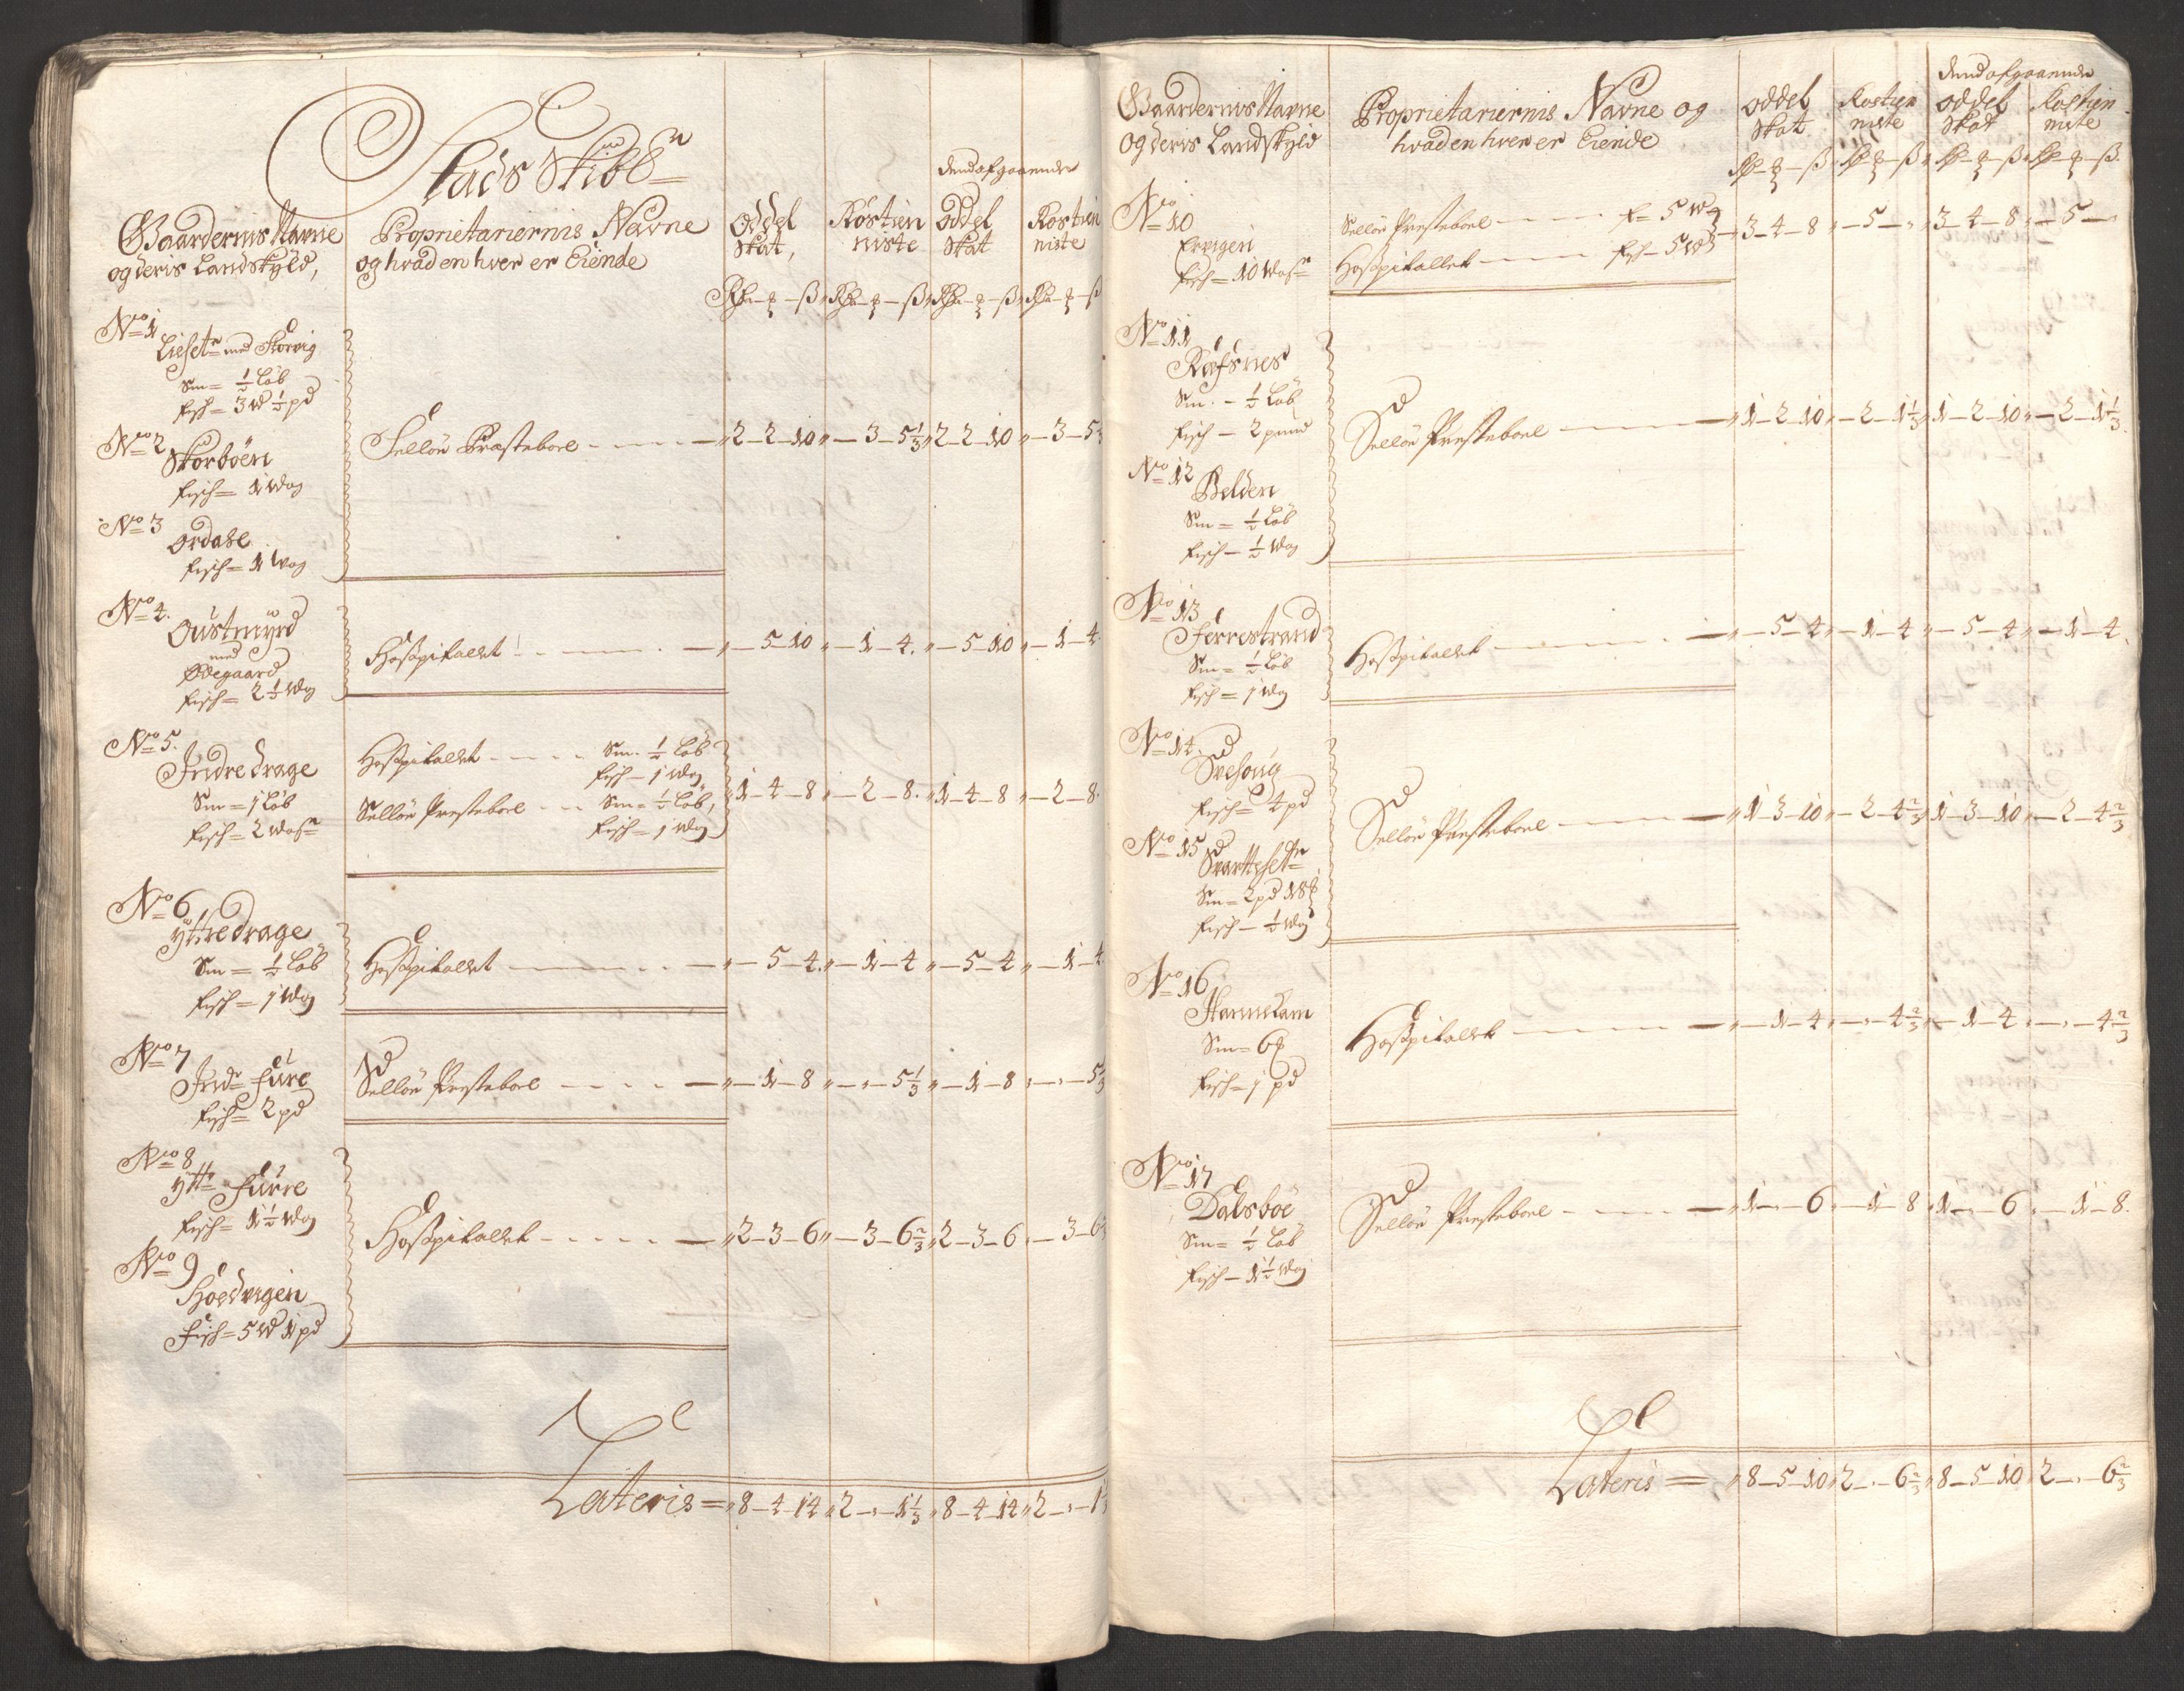 Stads Skibb
Gaardernis Navne
og deris Landskyld,
Proprietariernis Navne
og hvad en hver er Eiende
Oddel
Skat,
Rostien
niste
dend afgaaende
Oddel
Skat
Rostien
niste
No 1
Liesetr med Skorvig
Sm = ½ Løb
Fisch = 3 W ½ pd
No 2
Skorbøen
Fisch = 1 Wog
No 3
Ordahl
Fisch = 1 Wog
Selløe Præstebole - - - 2 - 2 - 10 - 3 - 5⅓ 2 - 2 - 10 - 3 - 5⅓
No 4.
Oustmyrd
med
Ødegaard
Fisch = 2½ Wog
Hospitallet - - - 5 - 10 - 1 - 4. - 5 - 10 - 1 - 4
No 5.
Indre Drage
Sm = 1 Løb
Fisch = 2 Wogr
Hospitallet - - - Sm. ½ Løb
Fisch - 1 Wog
Selløe Prestebole - - Sm = ½ Løb,
Fisch = 1 Wog
1 - 4 - 8 - 2 - 8. 1 - 4 - 8 - 2 - 8.
No 6
Yttre Drage
Sm = ½ Løb
Fisch = 1 Wog
Hospitallet - - - 5 - 4. - 1 - 4 - 5 - 4 - 1 - 4
No 7
Indr Fure
Fisch = 2 pd
Selløe Prestebole - - - 1 - 8 - - 5⅓ - 1 - 8 - - 5⅓
No 8
Yttr Furre
Fisch = 1½ Wog
No 9
Hoedvigen
Fisch = 5 W 1 pd
Hospitallet - - - 2 - 3 - 6 - 3 - 6⅔ 2 - 3 - 6 - 3 - 6
Lateris = 8 - 4 - 14 2 - - 1⅓ 8 - 4 - 14 2 - - 1⅓
Gaardernis Navne
og deris Landskyld
Proprietariernis Navne og
hvad en hver er Eiende
Oddel
Skat
Rostien
niste
dend afgaaende
Oddel
Skat
Rostien
niste
No 10
Ervigen
Fisch = 10 Wogr
Selløe Prestebole - - - F = 5 Wog
Hospitallet - - - Fisch - 5 W
3 - 4 - 8 - 5 - 3 - 4 - 8 - 5 -
No 11
Refsnes
Sm. - ½ Løb
Fisch - 2 pund
No 12
Belden
Sm = ½ Løb
Fisch - ½ Wog
Selløe Prestebole - - - 1 - 2 - 10 - 2 - 1⅓ 1 - 2 - 10 - 2 - 1⅓
No 13
Ferrestrand
Sm = ½ Løb
Fisch = 1 Wog
Hospitallet - - - 5 - 4 - 1 - 4 - 5 - 4 - 1 - 4
No 14
Fisch = 4 pd
No 15
Svartesetr
Sm = 2 pd 18
Fisch - ½ Wog
Selløe Prestebole - - - 1 - 3 - 10 - 2 - 4⅔ 1 - 3 - 10 - 2 - 4⅔
No 16
Sm = 6
Fisch = 1 pd
Hospitallet - - - 1 - 4 - - 4⅔ - 1 - 4 - - 4⅔
No 17
Dalsbøe
Sm = ½ Løb
Fisch - 1½ Wog
Selløe Prestebole - - - 1 - - 6 - 1 - 8 1 - - 6 - 1 - 8.
Lateris = 8 - 5 - 10 2 - - 6⅔ 8 - 5 - 10 2 - - 6⅔